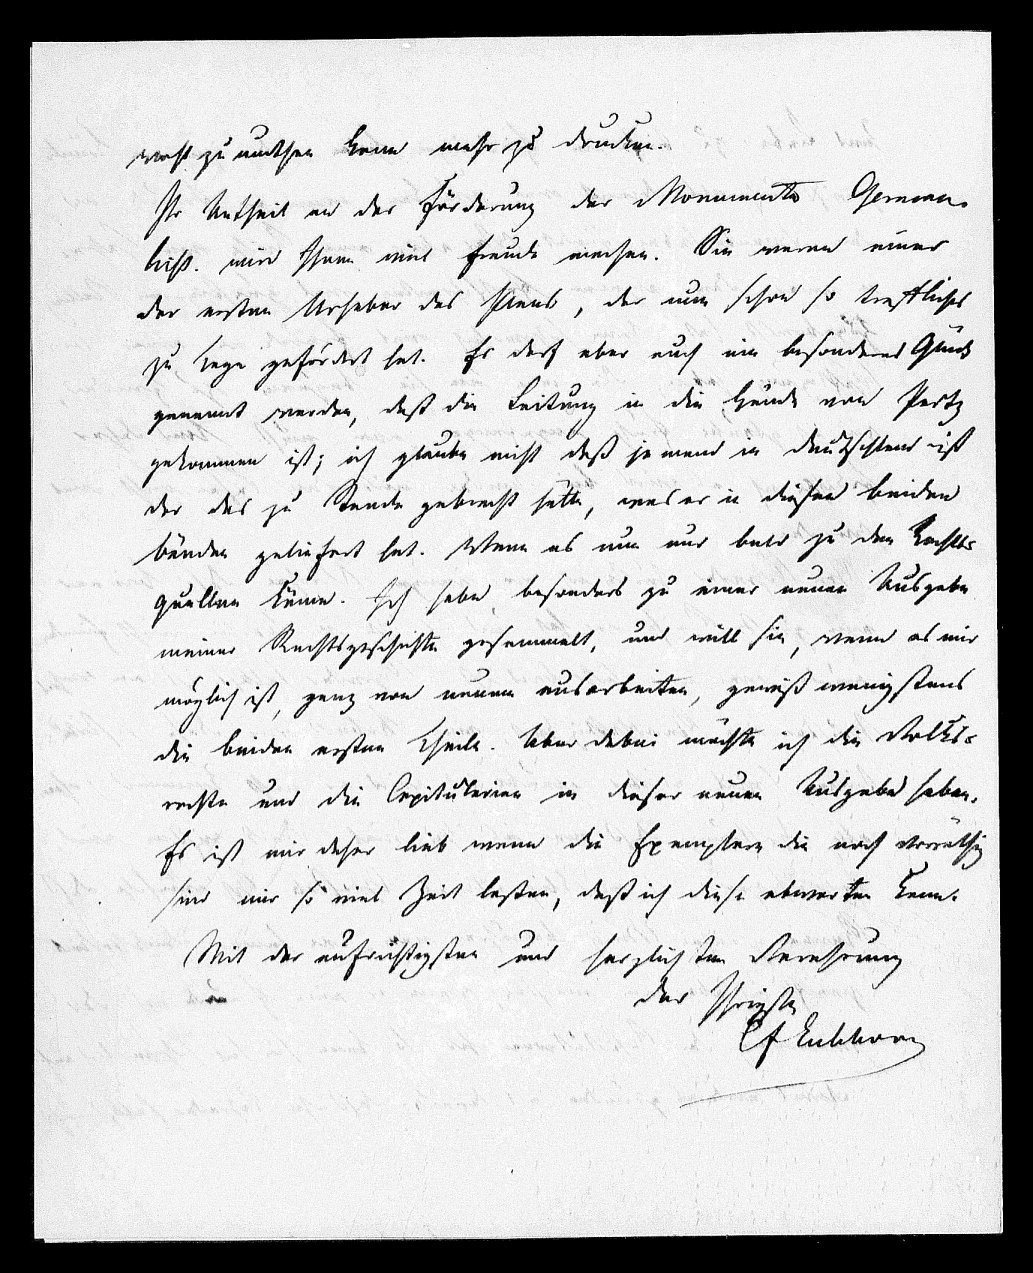 recht zumuthen kann mehr zu drucken.
Ihr Antheil an der Förderung der Monumenta German.
hist. wird Ihnen viel Freude machen. Sie waren einer
der ersten Urheber des Plans, der nun schon so treffliches
zu Tage gefördert hat. Es darf aber auch ein besonderes Glück
genannt werden, daß die Leitung in die Hände von Pertz
gekommen ist; ich glaube nicht daß jemand in Deutschland ist
der das zu Stande gebracht hätte, was er in diesen beiden
bänden geliefert hat. Wenn es nun nur bald zu den Rechts-
quellen käme. Ich habe besonders zu einer neuen Ausgabe
meiner Rechtsgeschichte gesammelt, und will sie, wenn es mir
möglich ist, ganz von neuem ausarbeiten, gewiß wenigstens
die beiden ersten Theile. Aber dabei möchte ich die Volks-
rechte und die Capitularien in dieser neuen Ausgabe haben.
Es ist mir daher lieb wenn die Exemplare die noch vorräthig
sind mir so viel Zeit lassen, daß ich diese abwarten kann.
Mit der aufrichtigsten und herzlichsten Verehrung
der Ihrigste
CF Eichhorn